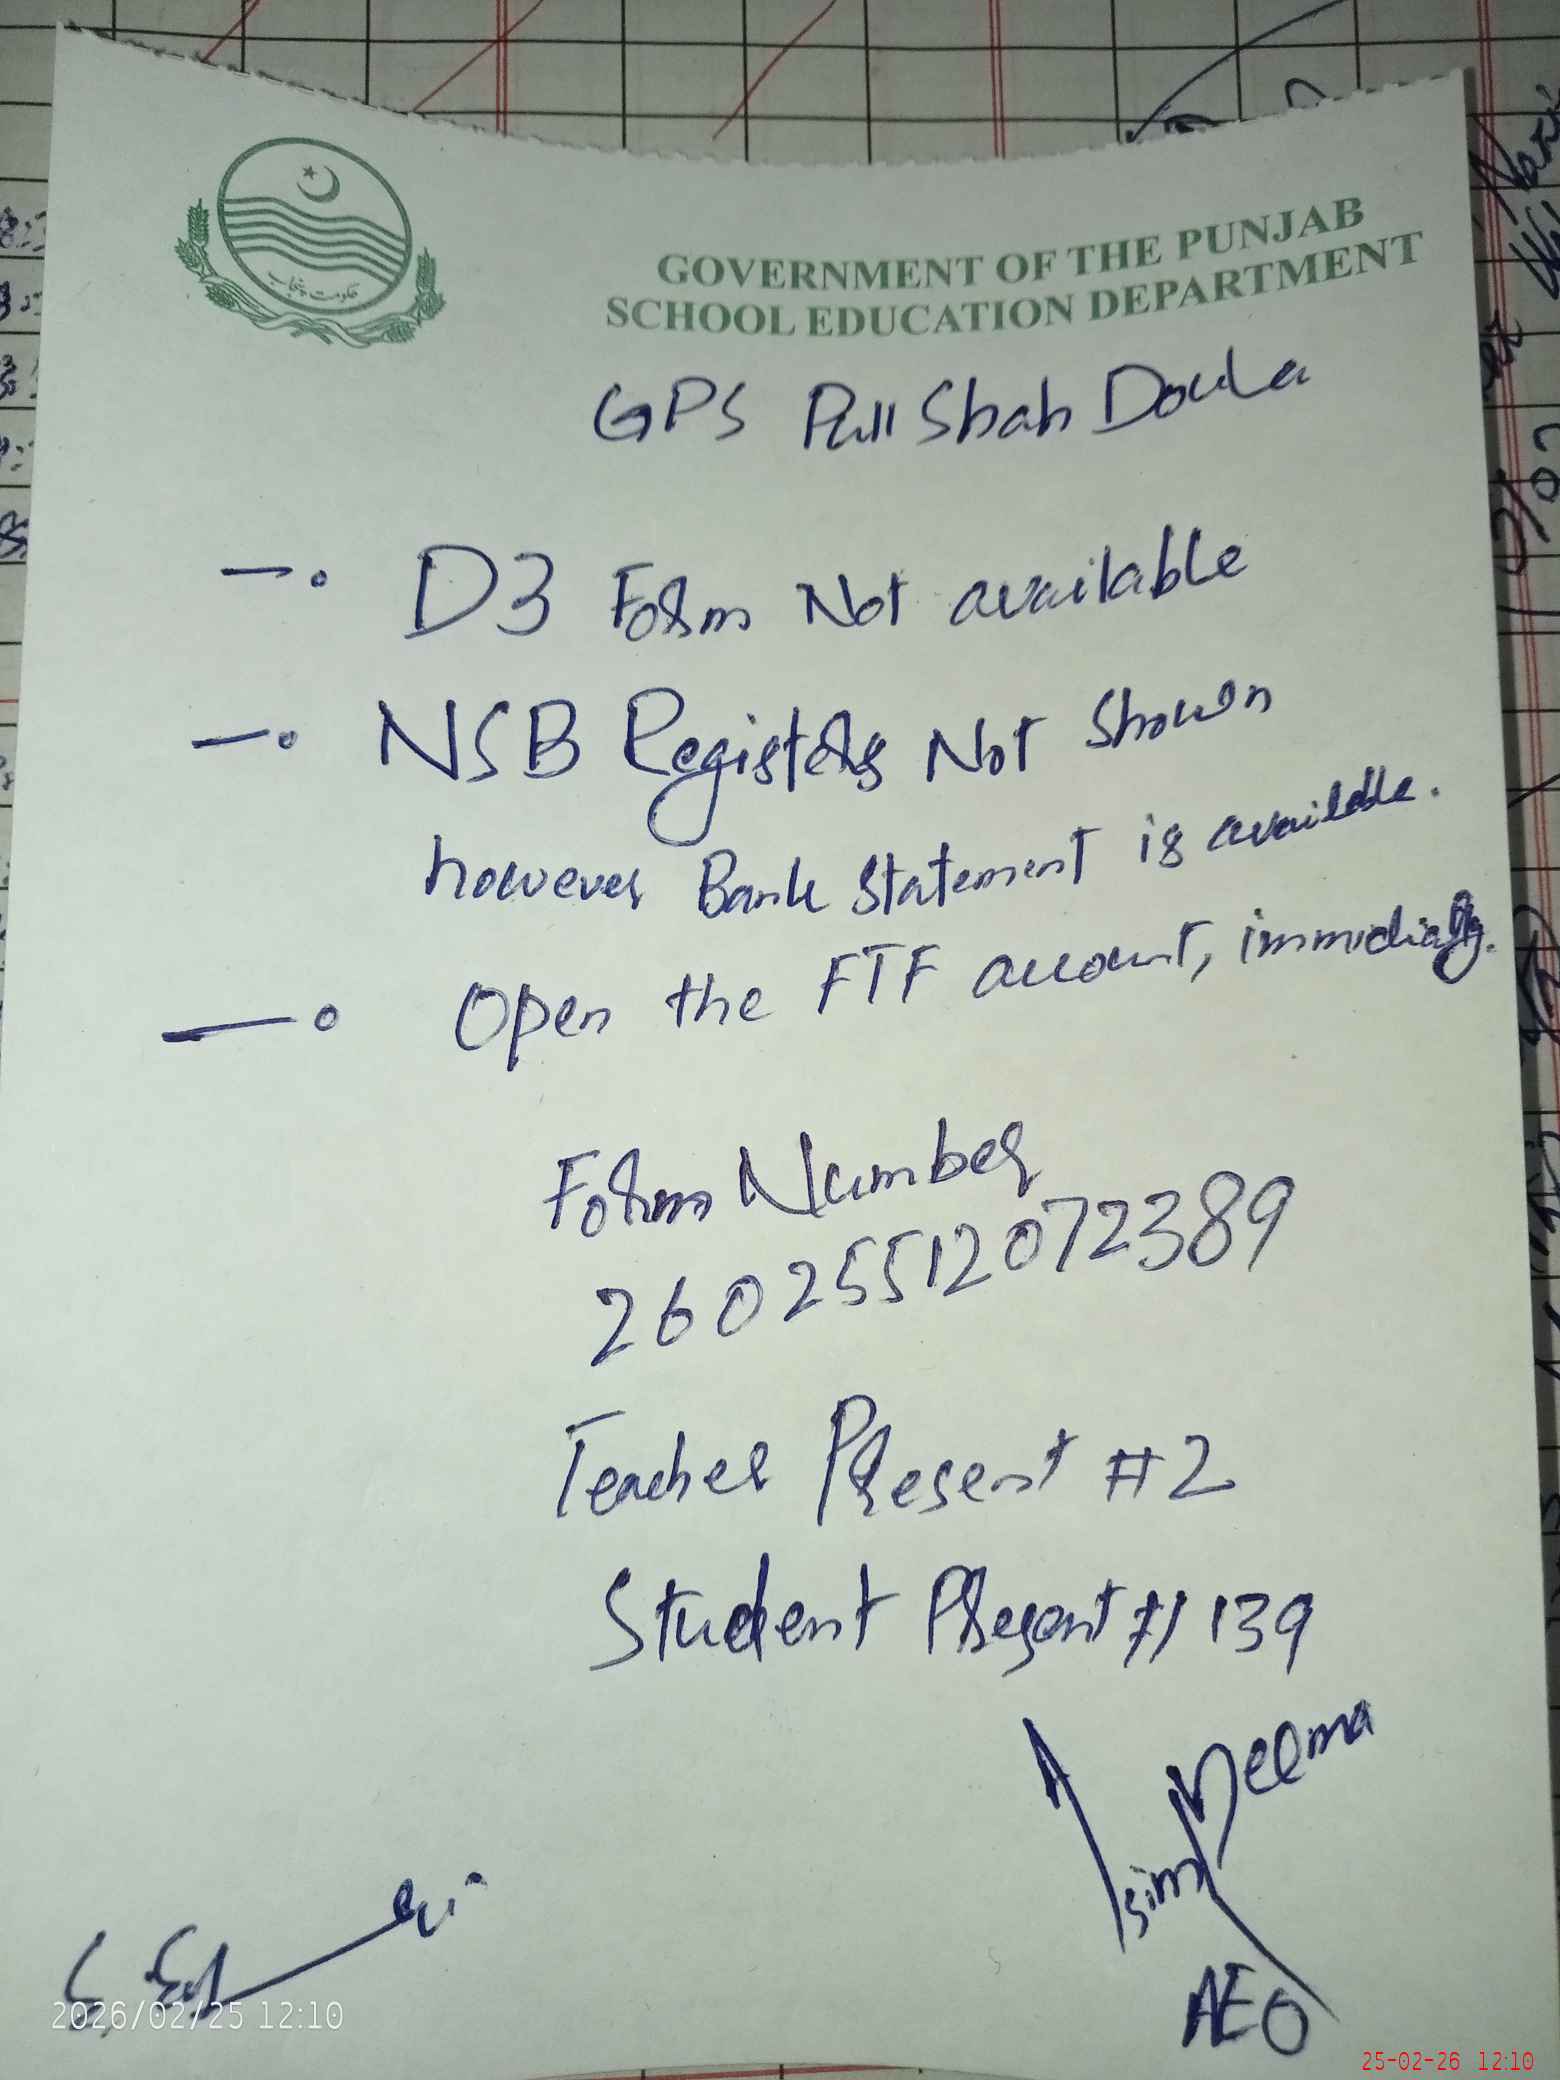 حکومت پنجاب
GOVERNMENT OF THE PUNJAB
SCHOOL EDUCATION DEPARTMENT
GPS Pull Shah Doula
—• D3 Form Not available
—• NSB Registers Not Shown
however Bank Statement is available.
—• Open the FTF account, immediatly.
Form Number
26025512072389
Teacher Present #2
Student Present # 139
Asim Neema
AEO
2026/02/25 12:10
25-02-26 12:10